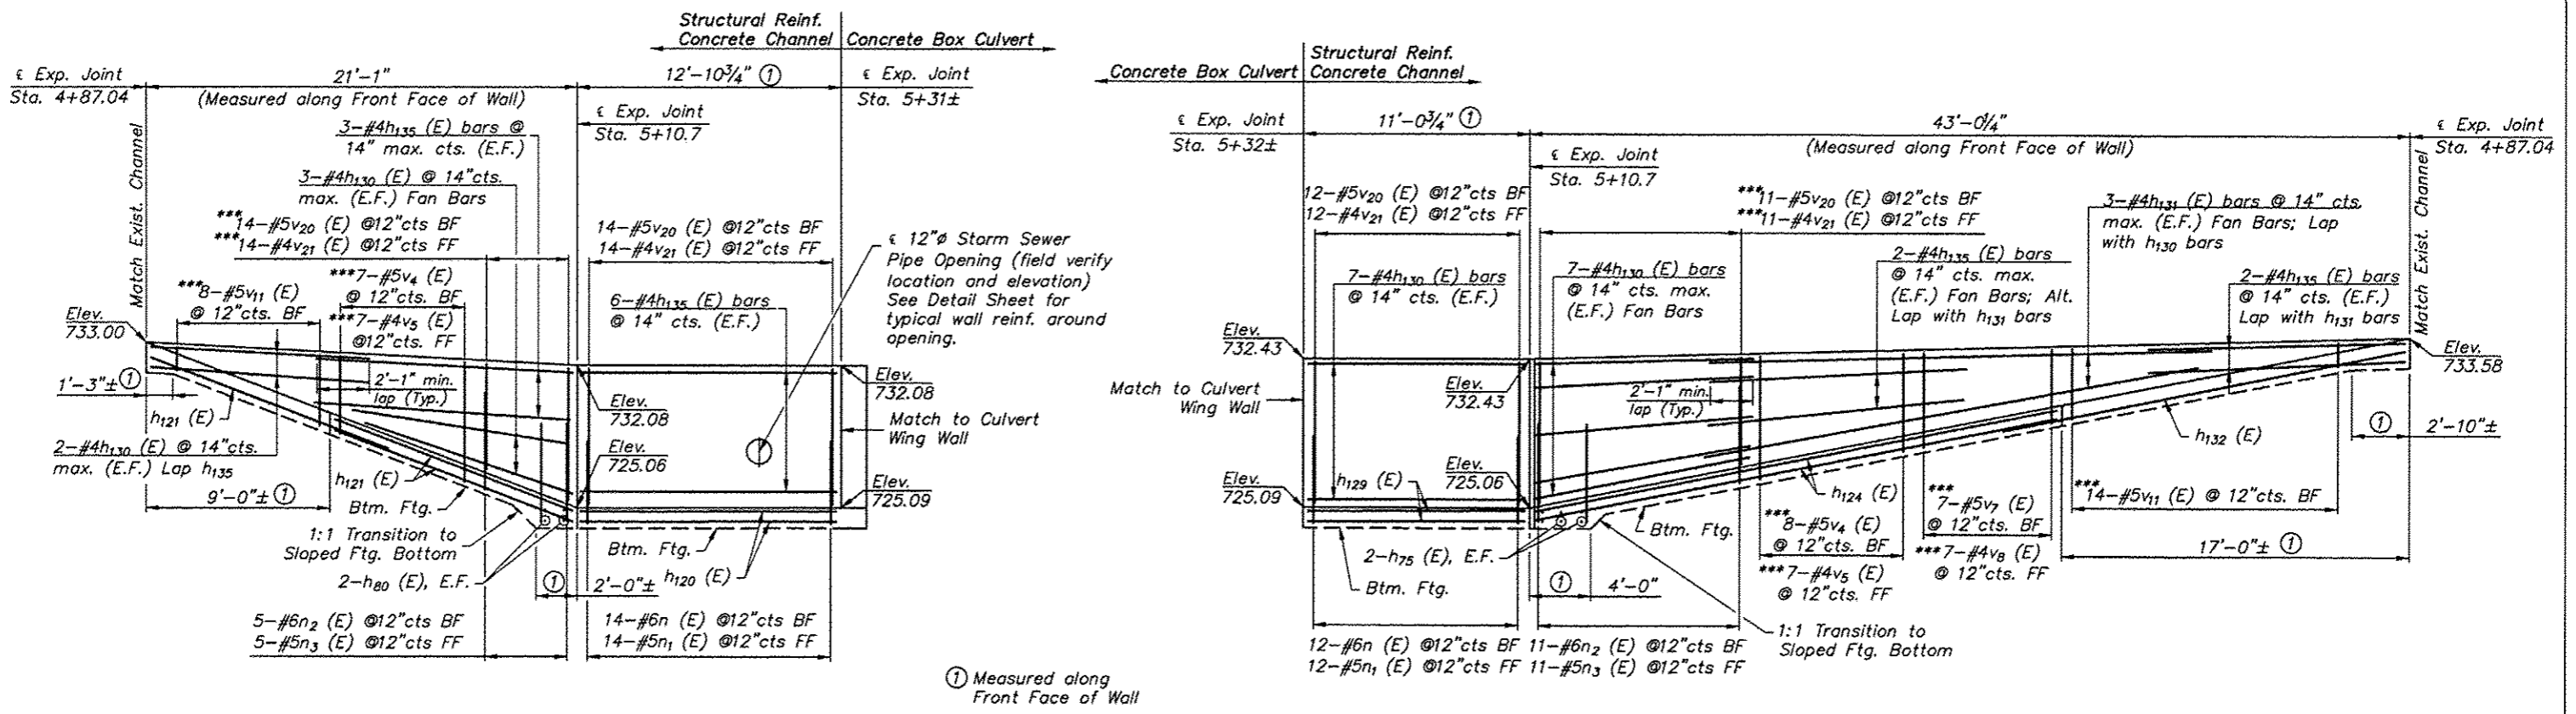 Structural Reinf.
Concrete Channel
Concrete Box Culvert
℄ Exp. Joint
Sta. 4+87.04
21'-1"
(Measured along Front Face of Wall)
12'-10¾" ①
℄ Exp. Joint
Sta. 5+31±
℄ Exp. Joint
Sta. 5+10.7
Match Exist. Channel
3-#4h135 (E) bars @
14" max. cts. (E.F.)
3-#4h130 (E) @ 14"cts.
max. (E.F.) Fan Bars
***14-#5v20 (E) @12"cts BF
***14-#4v21 (E) @12"cts FF
14-#5v20 (E) @12"cts BF
14-#4v21 (E) @12"cts FF
℄ 12"ø Storm Sewer
Pipe Opening (field verify
location and elevation)
See Detail Sheet for
typical wall reinf. around
opening.
***8-#5v11 (E)
@ 12"cts. BF
***7-#5v4 (E)
@ 12"cts. BF
***7-#4v5 (E)
@12"cts. FF
6-#4h135 (E) bars
@ 14" cts. (E.F.)
Elev.
733.00
1'-3"± ①
h121 (E)
2'-1" min.
lap (Typ.)
Elev.
732.08
Elev.
732.08
Match to Culvert
Wing Wall
2-#4h130 (E) @ 14"cts.
max. (E.F.) Lap h135
h121 (E)
Elev.
725.06
Elev.
725.09
9'-0"± ①
Btm. Ftg.
1:1 Transition to
Sloped Ftg. Bottom
Btm. Ftg.
2-h80 (E), E.F.
① 2'-0"±
h120 (E)
5-#6n2 (E) @12"cts BF
5-#5n3 (E) @12"cts FF
14-#6n (E) @12"cts BF
14-#5n1 (E) @12"cts FF
① Measured along
Front Face of Wall
Concrete Box Culvert
Structural Reinf.
Concrete Channel
℄ Exp. Joint
Sta. 5+32±
11'-0¾" ①
43'-0¼"
(Measured along Front Face of Wall)
℄ Exp. Joint
Sta. 4+87.04
℄ Exp. Joint
Sta. 5+10.7
Match Exist. Channel
12-#5v20 (E) @12"cts BF
12-#4v21 (E) @12"cts FF
***11-#5v20 (E) @12"cts BF
***11-#4v21 (E) @12"cts FF
3-#4h131 (E) bars @ 14" cts.
max. (E.F.) Fan Bars; Lap
with h130 bars
7-#4h130 (E) bars
@ 14" cts. (E.F.)
7-#4h130 (E) bars
@ 14" cts. max.
(E.F.) Fan Bars
2-#4h135 (E) bars
@ 14" cts. max.
(E.F.) Fan Bars; Alt.
Lap with h131 bars
2-#4h135 (E) bars
@ 14" cts. (E.F.)
Lap with h131 bars
Elev.
732.43
Match to Culvert
Wing Wall
Elev.
732.43
2'-1" min.
lap (Typ.)
Elev.
733.58
① 2'-10"±
h132 (E)
Elev.
725.09
h129 (E)
Elev.
725.06
h124 (E)
Btm. Ftg.
***8-#5v4 (E)
@ 12"cts. BF
***7-#4v5 (E)
@ 12"cts. FF
***
7-#5v7 (E)
@ 12"cts. BF
***7-#4v8 (E)
@ 12"cts. FF
***14-#5v11 (E) @ 12"cts. BF
17'-0"± ①
2-h75 (E), E.F.
Btm. Ftg.
① 4'-0"
1:1 Transition to
Sloped Ftg. Bottom
12-#6n (E) @12"cts BF
12-#5n1 (E) @12"cts FF
11-#6n2 (E) @12"cts BF
11-#5n3 (E) @12"cts FF